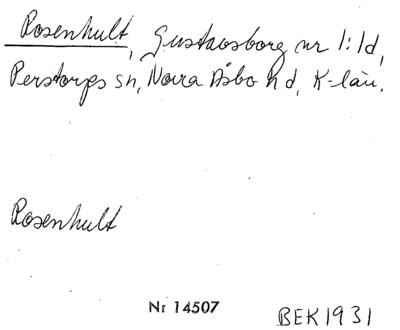 Rosenhult, Gustavsborg nr 1:1d,
Perstorps sn, Norra Åsbo hd, K-län.
Rosenhult
Nr 14507
BEK 1931